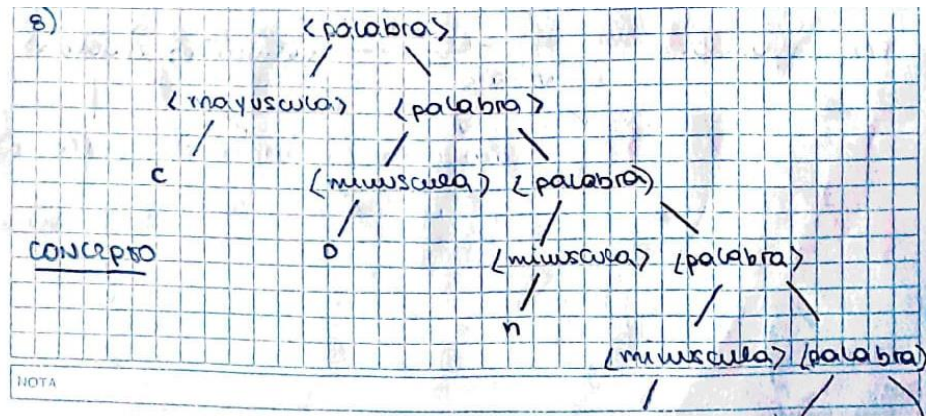 8)
<palabra>
<mayuscula> <palabra>
c <minuscula> <palabra>
Concepto o <minuscula> <palabra>
n
<minuscula> <palabra>
NOTA